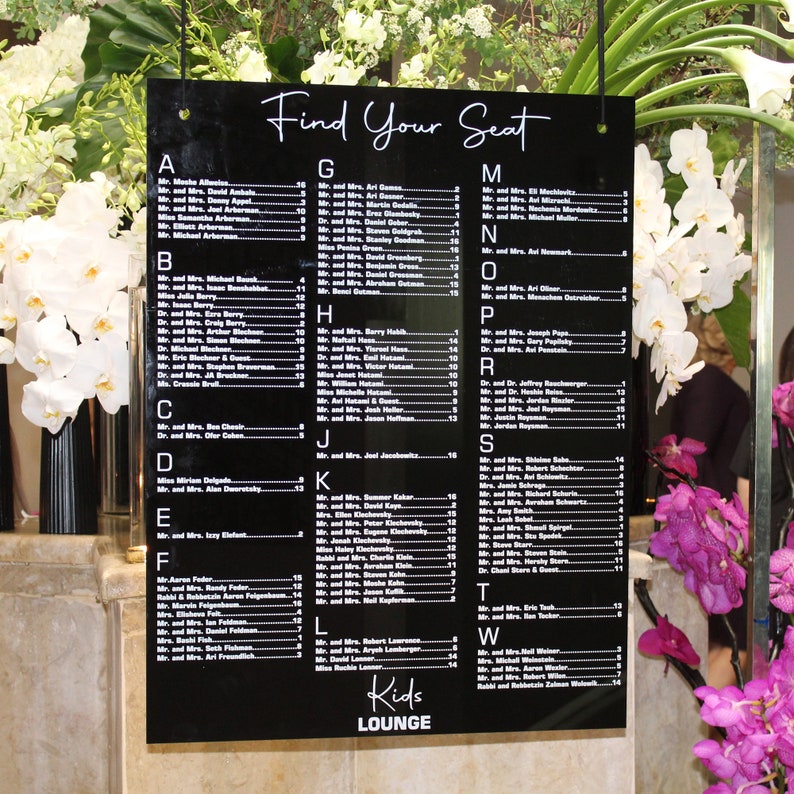 Find Your Seat
A
Mr. Moshe Allweiss 16
Mr. and Mrs. David Ambalu 5
Mr. and Mrs. Donny Appel 3
Mr. and Mrs. Joel Arberman 10
Miss Samantha Arberman 9
Mr. Elliott Arberman 9
Mr. Michael Arberman 9
B
Mr. and Mrs. Michael Bausk 4
Mr. and Mrs. Isaac Benshabbat 11
Miss Julia Berry 12
Mr. Isaac Berry 12
Dr. and Mrs. Ezra Berry 8
Dr. and Mrs. Craig Berry 2
Mr. and Mrs. Arthur Blechner 10
Mr. and Mrs. Simon Blechner 10
Dr. Michael Blechner 9
Mr. Eric Blechner & Guest 9
Mr. and Mrs. Stephen Braverman 15
Dr. and Mrs. JA Bruckner 13
Ms. Crassie Brull 6
C
Mr. and Mrs. Ben Chesir 8
Dr. and Mrs. Ofer Cohen 5
D
Miss Miriam Delgado 9
Mr. and Mrs. Alan Dworetsky 13
E
Mr. and Mrs. Izzy Elefant 2
F
Mr.Aaron Feder 15
Mr. and Mrs. Randy Feder 12
Rabbi & Rebbetzin Aaron Feigenbaum 14
Mr. Marvin Feigenbaum 16
Mrs. Elisheva Feit 4
Mr. and Mrs. Ian Feldman 12
Mr. and Mrs. Daniel Feldman 7
Mrs. Bashi Fish 1
Mr. and Mrs. Seth Fishman 8
Mr. and Mrs. Ari Freundlich 3
G
Mr. and Mrs. Ari Gamss 2
Mr. and Mrs. Ari Gasner 2
Mr. and Mrs. Marcia Gedalin
Mr. and Mrs. Erez Glambosky 1
Dr. and Mrs. Daniel Gober 4
Mr. and Mrs. Steven Goldgrab 11
Mr. and Mrs. Stanley Goodman 16
Miss Penina Green 16
Mr. and Mrs. David Greenberg 1
Mr. and Mrs. Benjamin Gross 13
Mr. and Mrs. Daniel Grossman 4
Mr. and Mrs. Abraham Gutman 15
Mr. Benci Gutman 15
H
Mr. and Mrs. Barry Habib 1
Mr. Naftali Hass 14
Mr. and Mrs. Yisroel Hass 14
Dr. and Mrs. Emil Hatami 10
Mr. and Mrs. Victor Hatami 10
Miss Jenet Hatami 10
Mr. William Hatami 10
Miss Michelle Hatami 9
Mr. Avi Hatami & Guest 9
Mr. and Mrs. Josh Heller 5
Mr. and Mrs. Jason Hoffman 13
J
Mr. and Mrs. Joel Jacobowitz 16
K
Mr. and Mrs. Summer Kakar 16
Mr. and Mrs. David Kaye 2
Mrs. Ellen Klechevsky 15
Mr. and Mrs. Peter Klechevsky 12
Mr. and Mrs. Eugene Klechevsky 12
Mr. Jonah Klechevsky 12
Miss Haley Klechevsky 12
Rabbi and Mrs. Charlie Klein 15
Mr. and Mrs. Avraham Klein 11
Mr. and Mrs. Steven Kohn 9
Mr. and Mrs. Moshe Kohn 7
Mr. and Mrs. Jason Kuflik 7
Mr. and Mrs. Neil Kupferman 2
L
Mr. and Mrs. Robert Lawrence 6
Mr. and Mrs. Aryeh Lemberger 6
Mr. David Lonner 14
Miss Ruchie Lonner 14
M
Mr. and Mrs. Eli Mechlovitz 5
Mr. and Mrs. Avi Mizrachi 3
Mr. and Mrs. Nechemia Mordowitz 6
Mr. and Mrs. Michael Muller 8
N
Mr. and Mrs. Avi Newmark 6
O
Mr. and Mrs. Ari Oliner 8
Mr. and Mrs. Menachem Ostreicher 5
P
Mr. and Mrs. Joseph Papa 8
Mr. and Mrs. Gary Papilsky 7
Dr. and Mrs. Avi Penstein 7
R
Dr. and Dr. Joffrey Rauchwerger 1
Mr. and Dr. Heshie Reiss 13
Mr. and Mrs. Jordan Rinzler 6
Mr. and Mrs. Joel Roysman 15
Mr. Justin Roysman 11
Mr. Jordan Roysman 11
S
Mr. and Mrs. Shloime Sabo 14
Mr. and Mrs. Robert Schechter 8
Dr. and Mrs. Avi Schiowitz 4
Mrs. Jamie Schraga 3
Mr. and Mrs. Richard Schurin 16
Mr. and Mrs. Avraham Schwartz 2
Mrs. Amy Smith 4
Mrs. Leah Sobel 3
Mr. and Mrs. Shmuli Spirgel 1
Mr. and Mrs. Stu Spodek 3
Mr. Steve Starr 16
Mr. and Mrs. Steven Stein 5
Mr. and Mrs. Hershy Stern 11
Dr. Chani Stern & Guest 11
T
Mr. and Mrs. Eric Taub 13
Mr. and Mrs. Ilan Tocker 6
W
Mr. and Mrs.Neil Weiner 3
Mrs. Michali Weinstein 5
Mr. and Mrs. Aaron Wexler 5
Mr. and Mrs. Robert Wilon 7
Rabbi and Rebbetzin Zalman Wolowik 14
Kids
LOUNGE